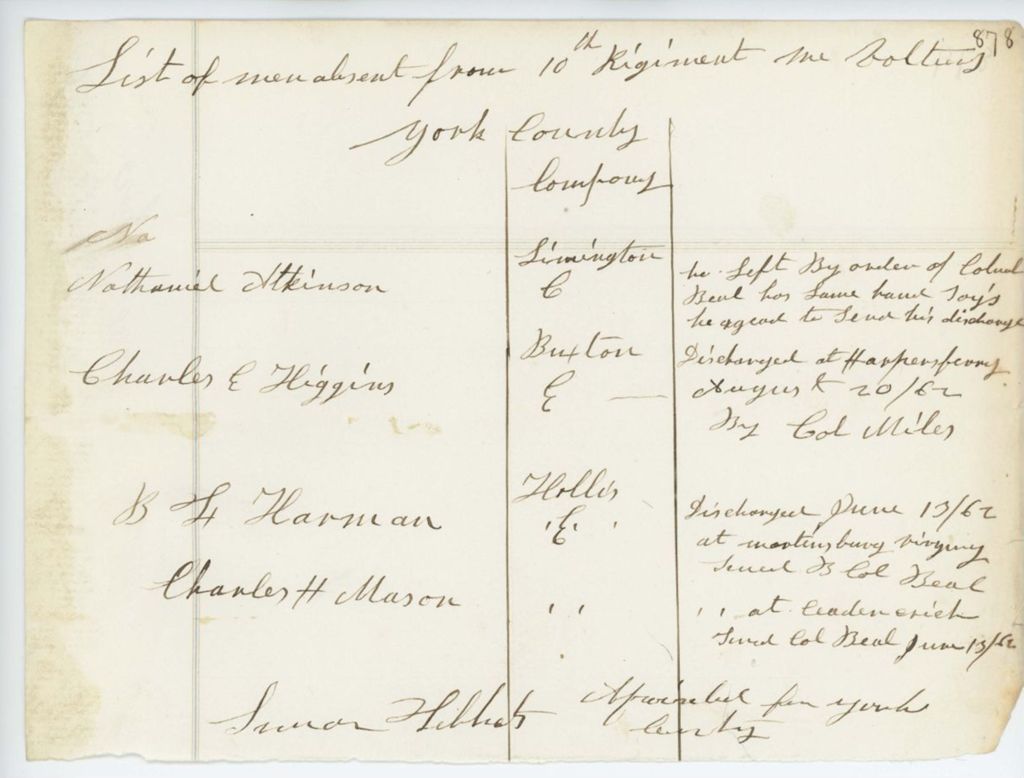 878
List of men absent from 10th Rigiment me Volturs
York County
Company
No
Limington
Nathaniel Atkinson C he Left By order of Colnel
Beal has Lame hand Say's
he agead to Send his discharge
Buxton
Charles E Higgins E Discharged at Harpersferry
August 20/62
By Col Miles
Hollis
B F Harman " E " Discharged June 13/62
at martinsburg virginy
Sined B Col Beal
Charles H Mason " " " at
Sined Col Beal June 13/62
Simon Hibbets for York
County